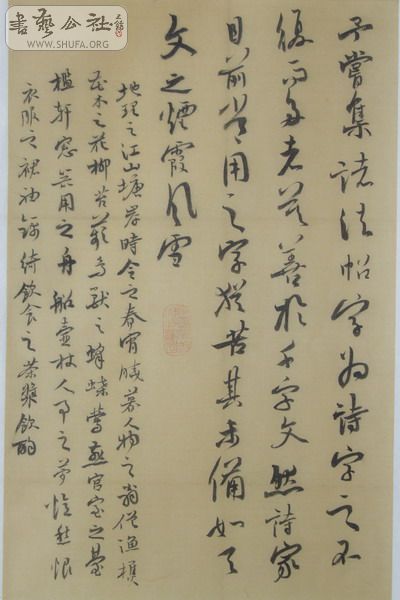 書藝公社
WWW.SHUFA.ORG
予嘗集諸法帖字為詩字之不
複而多者莫善於千字文然詩家
目前常用之字猶苦其未備如天
文之煙霞風雪
地理之江山塘岸時令之春宵曉暮人物之翁僧漁樵
花木之花柳苔鳥獸之蜂蝶鶯燕宮室之臺
檻軒窗器用之舟船壺杖人事之夢憶愁恨
衣服之裙袖錦綺飲食之茶漿飲酌